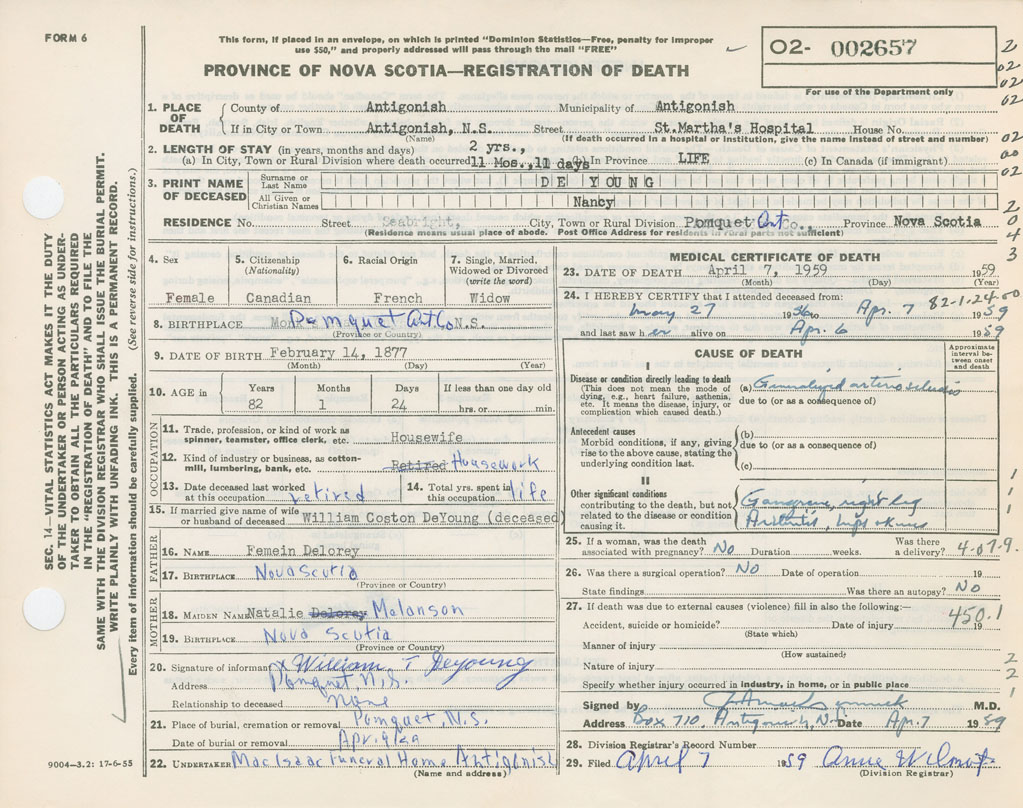 FORM 6
This form, if placed in an envelope, on which is printed "Dominion Statistics—Free, penalty for improper
use $50," and properly addressed will pass through the mail "FREE"
02- 002657
For use of the Department only
PROVINCE OF NOVA SCOTIA—REGISTRATION OF DEATH
1. PLACE OF DEATH County of Antigonish Municipality of Antigonish
If in City or Town Antigonish, N.S. Street St.Martha's Hospital House No.
(Name) (If death occurred in a hospital or institution, give the name instead of street and number)
2. LENGTH OF STAY (in years, months and days) 2 yrs.,
(a) In City, Town or Rural Division where death occurred 11 Mos., 11 days (b) In Province LIFE (c) In Canada (if immigrant)
3. PRINT NAME OF DECEASED Surname or Last Name DE YOUNG
All Given or Christian Names Nancy
RESIDENCE No. Street Seabright, City, Town or Rural Division Pomquet Ant Co., Province Nova Scotia
(Residence means usual place of abode. Post Office Address for residents in rural parts not sufficient)
4. Sex 5. Citizenship (Nationality) 6. Racial Origin 7. Single, Married, Widowed or Divorced (write the word)
Female Canadian French Widow
8. BIRTHPLACE Pomquet Ant Co N.S.
(Province or Country)
9. DATE OF BIRTH February 14, 1877
(Month) (Day) (Year)
10. AGE in Years Months Days If less than one day old
82 1 24 hrs. or min.
OCCUPATION
11. Trade, profession, or kind of work as spinner, teamster, office clerk, etc. Housewife
12. Kind of industry or business, as cotton-mill, lumbering, bank, etc. Retired Housework
13. Date deceased last worked at this occupation retired 14. Total yrs. spent in this occupation life
15. If married give name of wife or husband of deceased William Coston DeYoung (deceased)
FATHER
16. NAME Femein Delorey
17. BIRTHPLACE Nova Scotia
(Province or Country)
MOTHER
18. MAIDEN NAME Natalie Delorey Molanson
19. BIRTHPLACE Nova Scotia
(Province or Country)
20. Signature of informant x William T Deyoung
Address Pomquet, N.S.
Relationship to deceased None
21. Place of burial, cremation or removal Pomquet, N.S.
Date of burial or removal Apr. 9/59
22. UNDERTAKER MacIsaac Funeral Home Antigonish
(Name and address)
MEDICAL CERTIFICATE OF DEATH
23. DATE OF DEATH April 7, 1959 1959
(Month) (Day) (Year)
24. I HEREBY CERTIFY that I attended deceased from: 82-1-24-00
May 27 1956 to Apr. 7 1959
and last saw her alive on Apr. 6 1959
CAUSE OF DEATH
Approximate interval between onset and death
I
Disease or condition directly leading to death
(This does not mean the mode of dying, e.g., heart failure, asthenia, etc. It means the disease, injury, or complication which caused death.)
(a) Generalized arteriosclerosis
due to (or as a consequence of)
Antecedent causes
Morbid conditions, if any, giving rise to the above cause, stating the underlying condition last.
(b)
due to (or as a consequence of)
(c)
II
Other significant conditions contributing to the death, but not related to the disease or condition causing it.
Gangrene, right leg
Arthritis, hips & knees
25. If a woman, was the death associated with pregnancy? No Duration weeks. Was there a delivery? 4-07-9.
26. Was there a surgical operation? No Date of operation 19
State findings Was there an autopsy? No
27. If death was due to external causes (violence) fill in also the following:— 450.1
Accident, suicide or homicide? Date of injury 19
(State which)
Manner of injury
(How sustained)
Nature of injury
Specify whether injury occurred in industry, in home, or in public place
Signed by M.D.
Address Box 710, Antigonish, N.S. Date Apr. 7 1959
28. Division Registrar's Record Number
29. Filed April 7 1959 Anne Wilmot
(Division Registrar)
SEC. 14—VITAL STATISTICS ACT MAKES IT THE DUTY
OF THE UNDERTAKER OR PERSON ACTING AS UNDER-
TAKER TO OBTAIN ALL THE PARTICULARS REQUIRED
IN THE "REGISTRATION OF DEATH" AND TO FILE THE
SAME WITH THE DIVISION REGISTRAR WHO SHALL ISSUE THE BURIAL PERMIT.
WRITE PLAINLY WITH UNFADING INK. THIS IS A PERMANENT RECORD.
Every item of information should be carefully supplied. (See reverse side for instructions.)
9004—3.2: 17-6-55
2
02
02
02
02
00
02
2
0
4
3
1
1
1
2
2
1